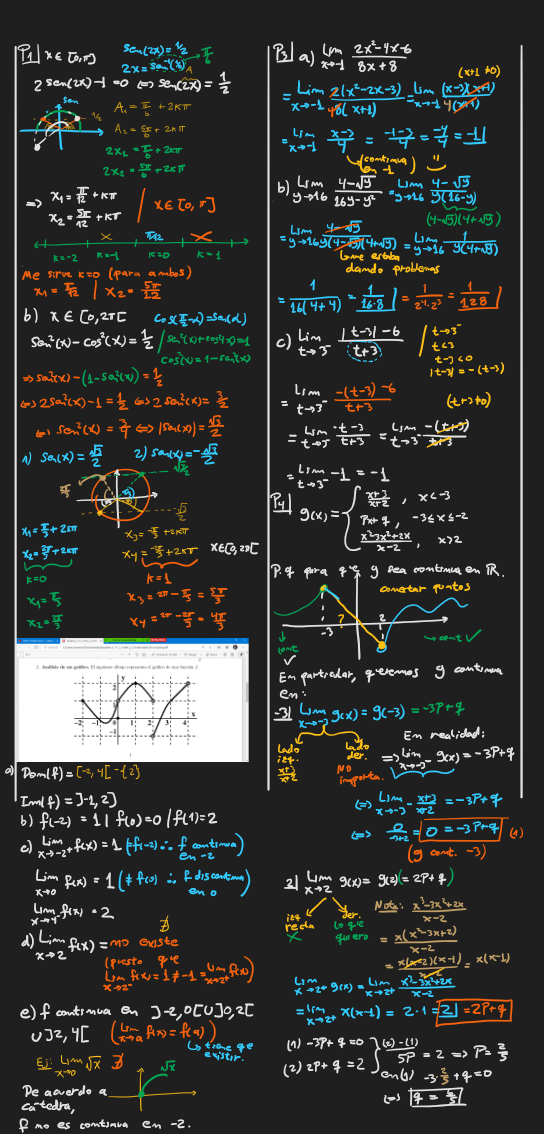 P1 | x ∈ [0, π]
sen(2x) = 1/2
2x = sen⁻¹(1/2)
π/6
2 sen(2x) - 1 = 0 ⇔ sen(2x) = 1/2
A
sen
1/2
A₁ = π/6 + 2kπ
A₂ = 5π/6 + 2kπ
2x₁ = π/6 + 2kπ
2x₂ = 5π/6 + 2kπ
⇒ x₁ = π/12 + kπ
x₂ = 5π/12 + kπ
x ∈ [0, π]
π/12
k=-2 k=-1 k=0 k=1
Me sirve k=0 (para ambos)
x₁ = π/12 | x₂ = 5π/12
b) x ∈ [0, 2π[
cos(π/2-α) = sen(α)
sen²(x) - cos²(x) = 1/2
sen²(x) + cos²(x) = 1
cos²(x) = 1 - sen²(x)
⇒ sen²(x) - (1 - sen²(x)) = 1/2
⇔ 2sen²(x) - 1 = 1/2 ⇔ 2sen²(x) = 3/2
⇔ sen²(x) = 3/4 ⇔ |sen(x)| = √3/2
1) sen(x) = √3/2 2) sen(x) = -√3/2
√3/2
-√3/2
x₁ = π/3 + 2kπ
x₂ = 2π/3 + 2kπ
x₃ = -π/3 + 2kπ
x₄ = -2π/3 + 2kπ x ∈ [0, 2π[
k=0
k=1
x₁ = π/3
x₂ = 2π/3
x₃ = 2π - π/3 = 5π/3
x₄ = 2π - 2π/3 = 4π/3
2. Análisis de un gráfico. El siguiente dibujo representa el gráfico de una función f.
y
x
a) Dom(f) = [-2, 4[ - {2}
Im(f) = ]-1, 2]
b) f(-2) = 1 | f(0) = 0 | f(1) = 2
c) Lim x→-2⁺ f(x) = 1 (= f(-2) ∴ f continua en -2
Lim x→0 f(x) = 1 (≠ f(0) ∴ f discontinua en 0
Lim x→4⁻ f(x) = 2
∄
d) Lim x→2 f(x) = no existe
(puesto que
Lim x→2⁻ f(x) = 1 ≠ -1 = Lim x→2⁺ f(x))
e) f continua en ]-2, 0[ U ]0, 2[
U ]2, 4[ (Lim x→a f(x) = f(a))
↳ tiene que existir.
Ej: Lim x→0 √x ∄
√x
De acuerdo a
cátedra,
f no es continua en -2.
P3 a) Lim x→-1 2x²-4x-6 / 8x+8
(x+1 ≠ 0)
= Lim x→-1 2(x²-2x-3) / 8(x+1) = Lim x→-1 (x-3)(x+1) / 4(x+1)
= Lim x→-1 x-3/4 = -1-3/4 = -4/4 = -1
(continua en -1)
b) Lim y→16 4-√y / 16y-y² = Lim y→16 4-√y / y(16-y)
(4-√y)(4+√y)
= Lim y→16 4-√y / y(4-√y)(4+√y) = Lim y→16 1 / y(4+√y)
↳ me estaba dando problemas
= 1/16(4+4) = 1/16·8 = 1/2⁴·2³ = 1/128
c) Lim t→3⁻ |t-3|-6 / t+3
t→3⁻
t<3
t-3<0
|t-3| = -(t-3)
= Lim t→3⁻ -(t-3)-6 / t+3
(t+3 ≠ 0)
= Lim t→3⁻ -t-3 / t+3 = Lim t→3⁻ -(t+3) / t+3
= Lim t→3⁻ -1 = -1
P4 g(x) = { x+3/x+2 , x < -3
px+q , -3 ≤ x ≤ 2
x³-3x²+2x / x-2 , x > 2
P, q para que g sea continua en ℝ.
conectar puntos
-3 ? 2
cont ✓
→ cont ✓
En particular, queremos g continua
en:
-3| Lim x→-3 g(x) = g(-3) = -3p+q
lado izq. x+3/x+2
lado der. NO importa.
En realidad:
⇒ Lim x→-3⁻ g(x) = -3p+q
⇔ Lim x→-3⁻ x+3/x+2 = -3p+q
⇔ 0/-3+2 = 0 = -3p+q (1)
(g cont. -3)
2| Lim x→2 g(x) = g(2) (= 2p+q)
izq recta
der. lo que quiero
Nota: x³-3x²+2x / x-2
= x(x²-3x+2) / x-2
= x(x-2)(x-1) / x-2 = x(x-1)
Lim x→2⁺ g(x) = Lim x→2⁺ x³-3x²+2x / x-2
= Lim x→2⁺ x(x-1) = 2·1 = 2 = 2p+q
(1) -3p+q = 0
(2) 2p+q = 2
(2)-(1) 5p = 2 ⇒ p = 2/5
en (1) -3·2/5 + q = 0
⇔ q = 6/5